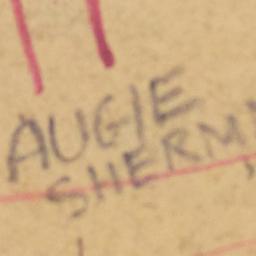 AUGIE
SHERM